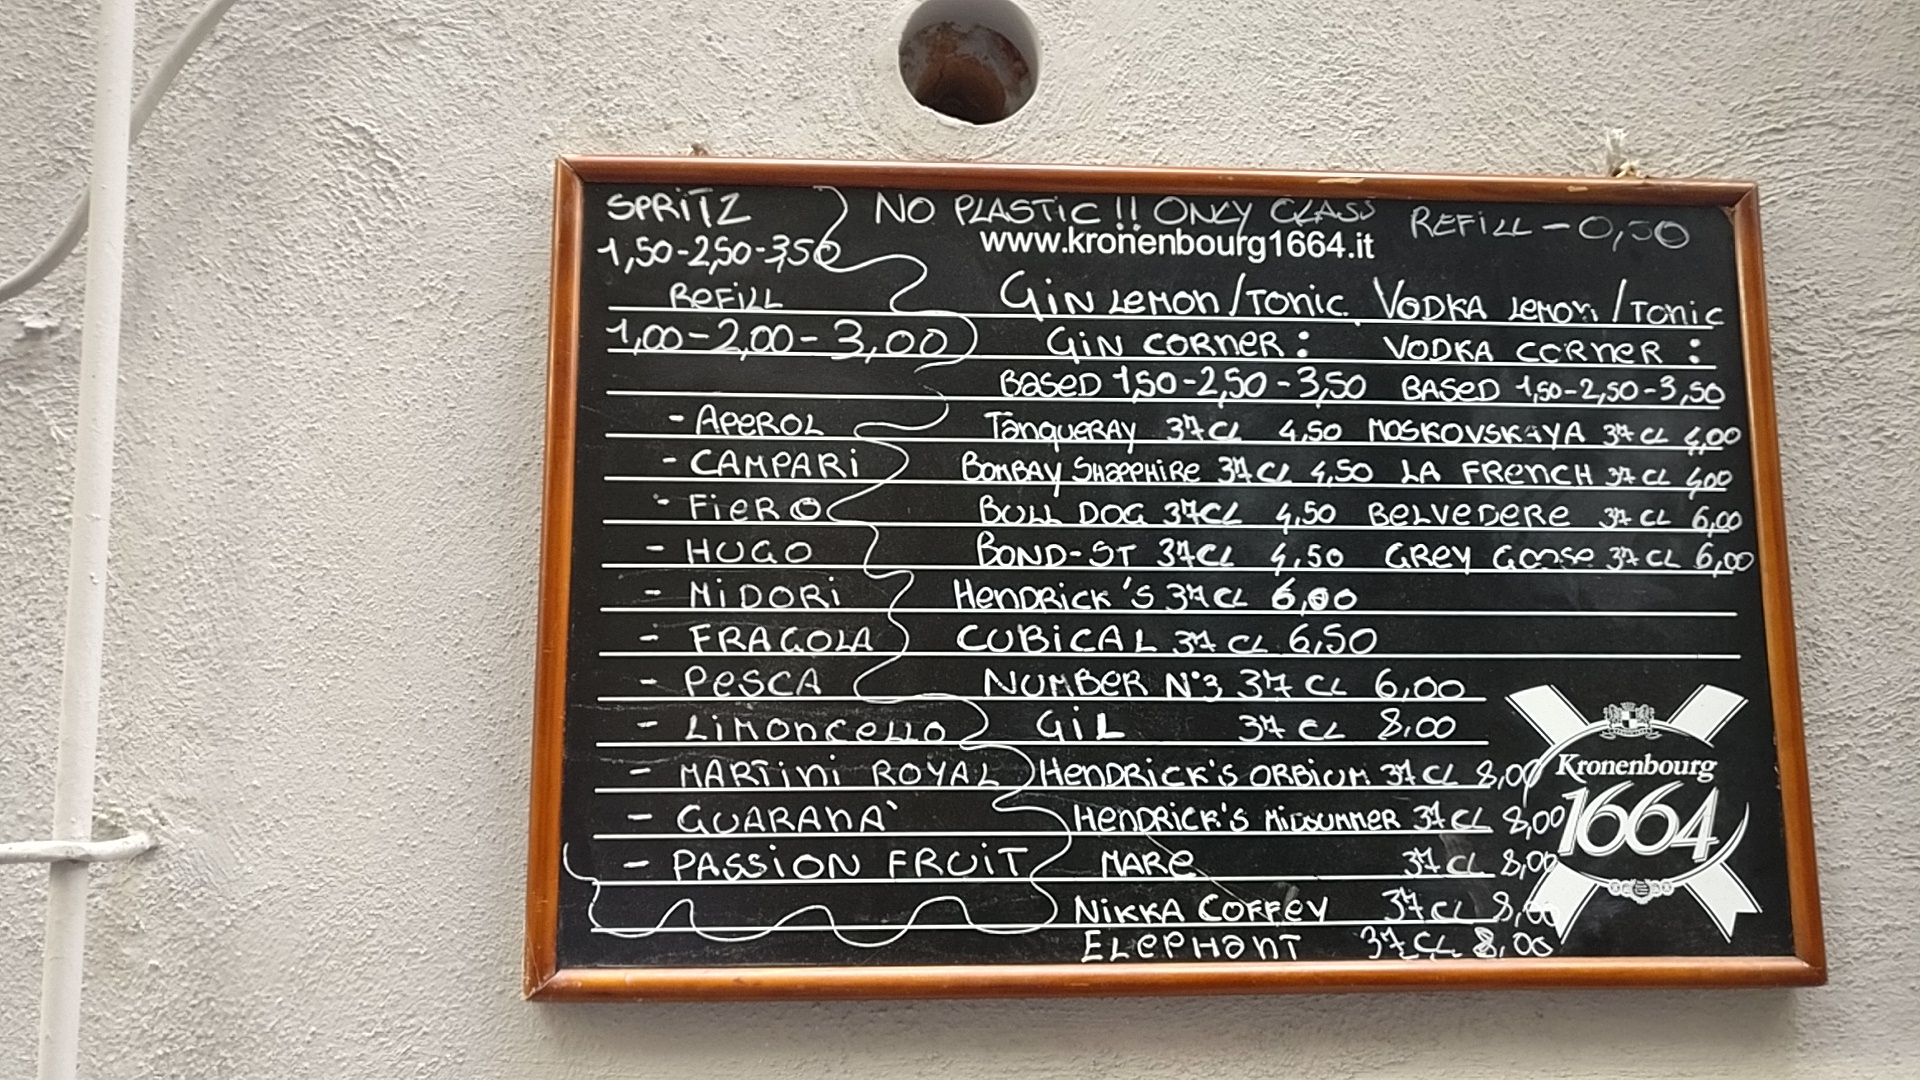 SPRITZ
1,50-2,50-3,50
REFILL
1,00-2,00-3,00
- APEROL
- CAMPARI
- FIERO
- HUGO
- MIDORI
- FRAGOLA
- PESCA
- LIMONCELLO
- MARTINI ROYAL
- GUARANA'
- PASSION FRUIT
NO PLASTIC!! ONLY GLASS REFILL - 0,50
www.kronenbourg1664.it
GIN LEMON/TONIC
GIN CORNER:
BASED 1,50-2,50-3,50
TANQUERAY 37CL 4,50
BOMBAY SHAPPHIRE 37CL 4,50
BULL DOG 37CL 4,50
BOND-ST 37CL 4,50
HENDRICK'S 37CL 6,00
CUBICAL 37 CL 6,50
NUMBER N°3 37 CL 6,00
GIL 37 CL 8,00
HENDRICK'S ORBIUM 37 CL 8,00
HENDRICK'S MIDSUMMER 37 CL 8,00
MARE 37 CL 8,00
NIKKA COFFEY 37 CL 8,00
ELEPHANT 37 CL 8,00
VODKA LEMON/TONIC
VODKA CORNER:
BASED 1,50-2,50-3,50
MOSKOVSKAYA 37 CL 4,00
LA FRENCH 37 CL 4,00
BELVEDERE 37 CL 6,00
GREY GOOSE 37 CL 6,00
Kronenbourg
1664